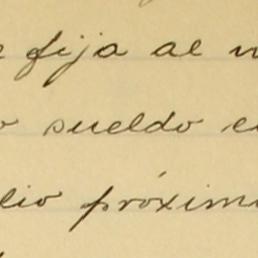 fija al
sueldo
próxim